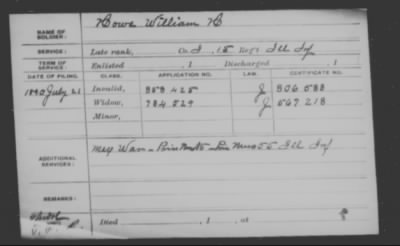 NAME OF SOLDIER:
Howe William H
SERVICE:
Late rank, Co. I, 15 Reg't Ill Inf
TERM OF SERVICE:
Enlisted , 1 Discharged , 1
DATE OF FILING. CLASS. APPLICATION NO. LAW. CERTIFICATE NO.
1890 July 21 Invalid, 858 425 J 506 588
Widow, 784 529 J 567 218
Minor,
ADDITIONAL SERVICES:
Mex War
55 Ill Inf
REMARKS:
Died , 1 , at